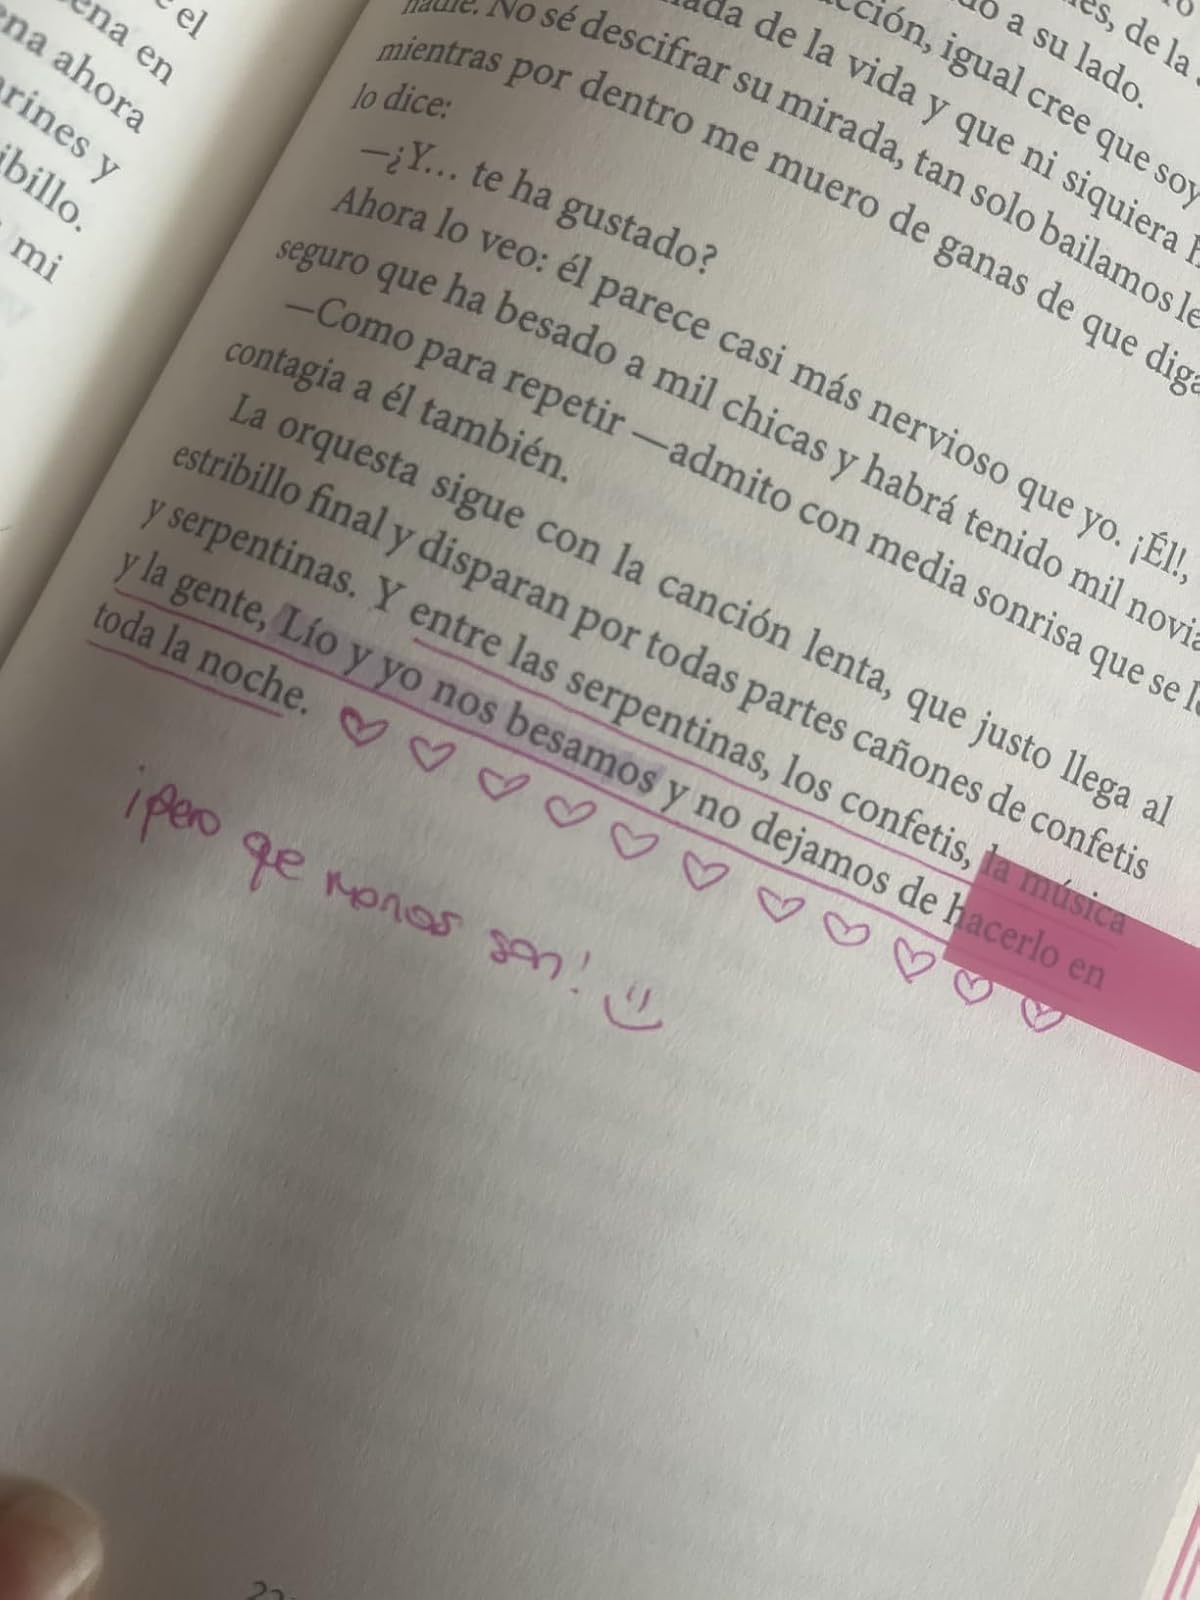 e el
ena en
ena ahora
arines y
ibillo.
mi
ro
nes, de la
do a su lado.
cción, igual cree que soy
nada de la vida y que ni siquiera h
nadie. No sé descifrar su mirada, tan solo bailamos le
mientras por dentro me muero de ganas de que diga
lo dice:
—¿Y... te ha gustado?
Ahora lo veo: él parece casi más nervioso que yo. ¡Él!,
seguro que ha besado a mil chicas y habrá tenido mil novia
—Como para repetir —admito con media sonrisa que se l
contagia a él también.
La orquesta sigue con la canción lenta, que justo llega al
estribillo final y disparan por todas partes cañones de confetis
y serpentinas. Y entre las serpentinas, los confetis, la música
y la gente, Lío y yo nos besamos y no dejamos de hacerlo en
toda la noche.
¡pero qe monos son!